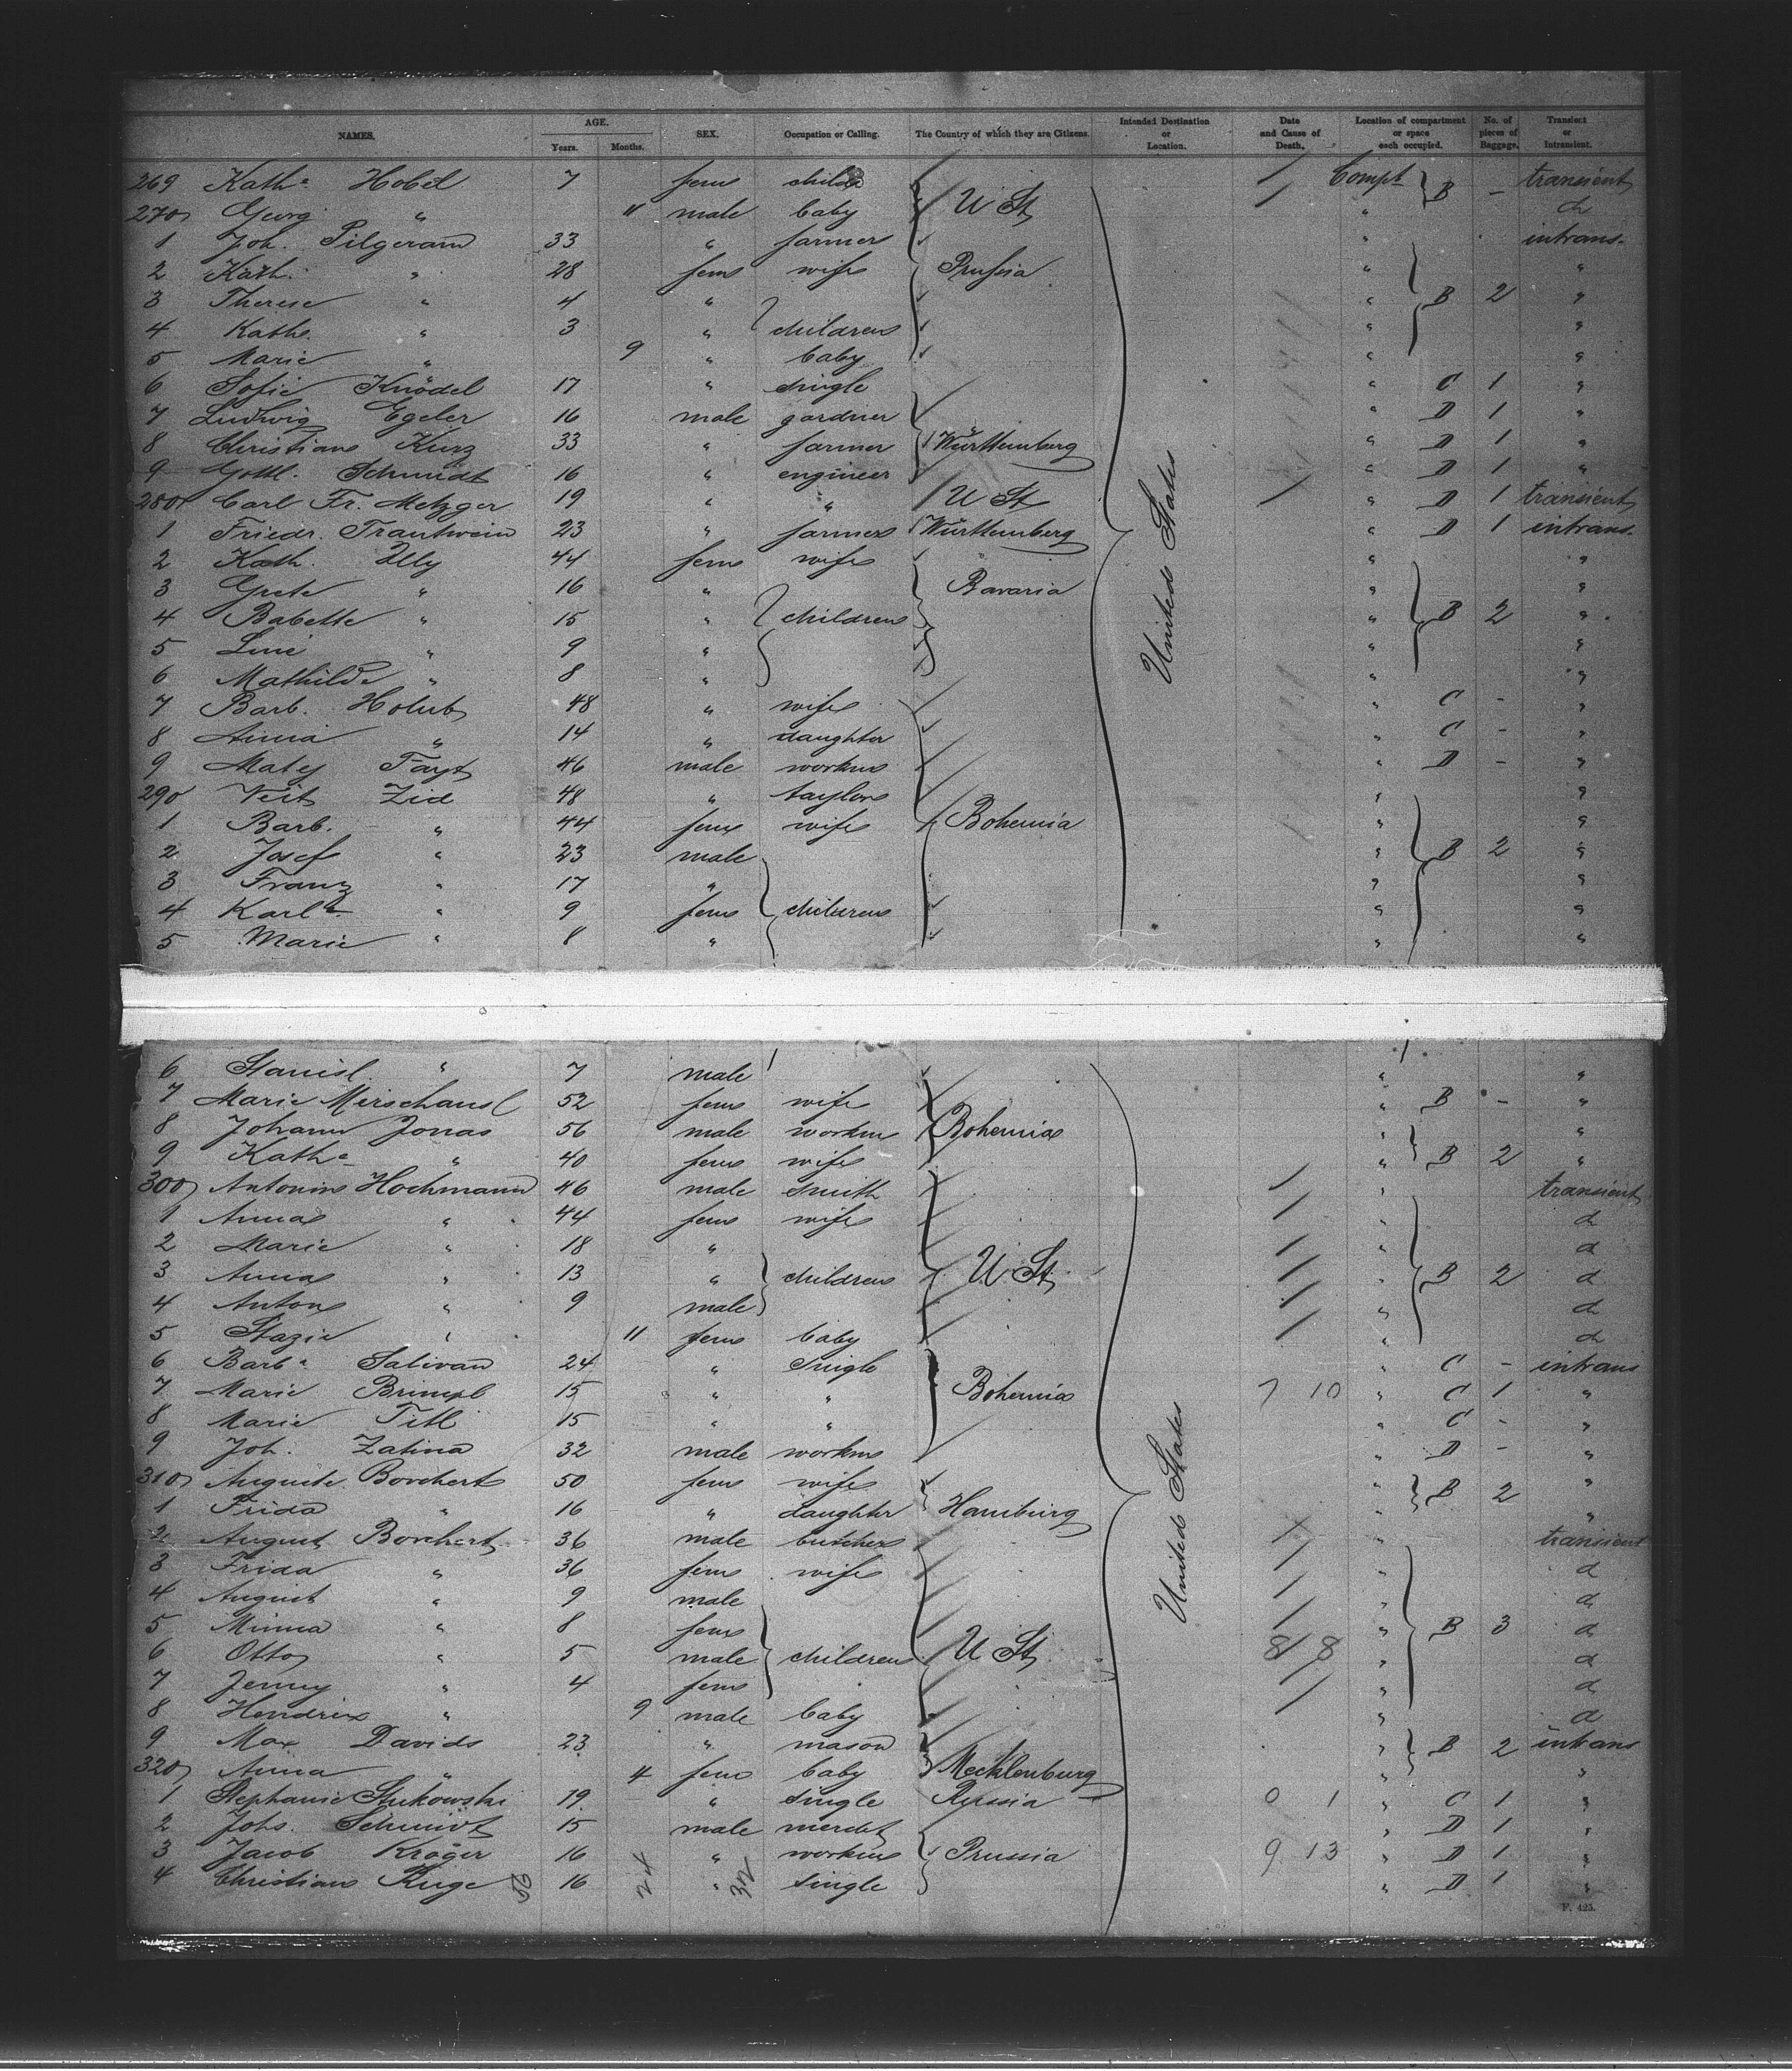 NAMES. AGE. Years. Months. SEX. Occupation or Calling. The Country of which they are Citizens. Intended Destination or Location. Date and Cause of Death. Location of compartment or space each occupied. No. of pieces of Baggage. Transient or Intransient.
269 Kath a Hobel 7 fem child Compt B - transient
270 Georg " 11 male baby U St " d
1 Joh. Pilgeram 33 " farmer " intrans.
2 Kath. " 28 fem wife Prussia " "
3 Therese " 4 " " B 2 "
4 Kathe. " 3 " children " "
5 Marie " 9 " baby " "
6 Sofie Knödel 17 " single " C 1 "
7 Ludwig Egeler 16 male gardner " D 1 "
8 Christian Kurz 33 " farmer Württemberg " D 1 "
9 Gottl. Schmidt 16 " engineer " D 1 "
280 Carl Fr. Metzger 19 " " U St " D 1 transient
1 Friedr. Trautwein 23 " farmer Württemberg " D 1 intrans.
2 Kath. Illy 44 fem wife " "
3 Grete " 16 " Bavaria " "
4 Babette " 15 " children " B 2 "
5 Line " 9 " " "
6 Mathilde " 8 " " "
7 Barb. Holub 48 " wife " C - "
8 Anna " 14 " daughter " C - "
9 Matej Fayt 46 male workm " D - "
290 Veit Zid 48 " taylor " "
1 Barb. " 44 fem wife Bohemia " "
2 Josef " 23 male " B 2 "
3 Franz " 17 " " "
4 Karl a " 9 fem children " "
5 Marie " 8 " " "
United States
6 Stanisl. " 7 male " "
7 Marie Mirschansl 52 fem wife " B - "
8 Johann Jonas 56 male workm Bohemia " "
9 Kath a " 40 fem wife " B 2 "
300 Antonin Hochmann 46 male smith " transient
1 Anna " 44 fem wife " d
2 Marie " 18 " " d
3 Anna " 13 " children U St " B 2 d
4 Anton " 9 male " d
5 Stazie " 11 fem baby " d
6 Barb a Salivan 24 " single " C - intrans
7 Marie Brimpl 15 " " Bohemia 7 10 " C 1 "
8 Marie Titl 15 " " " C - "
9 Joh. Zatina 32 male workm " D - "
310 Auguste Borchert 50 fem wife " B 2 "
1 Frida " 16 " daughter Hamburg "
2 August Borchert 36 male butcher " transient
3 Frida " 36 fem wife " d
4 August " 9 male " d
5 Minna " 8 fem " B 3 d
6 Otto " 5 male children U St 8 8 " d
7 Jenny " 4 fem " d
8 Hendrix " 9 male baby " d
9 Max Davids 23 " mason " B 2 intrans
320 Anna " 4 fem baby Mecklenburg " "
1 Stephanie Stukowski 19 " single Russia 0 1 " C 1 "
2 Johs. Schmidt 15 male " D 1 "
3 Jacob Kröger 16 " workm Prussia 9 13 " D 1 "
4 Christian Ruge 16 " single " D 1 "
United States
56 24 32
F. 425.